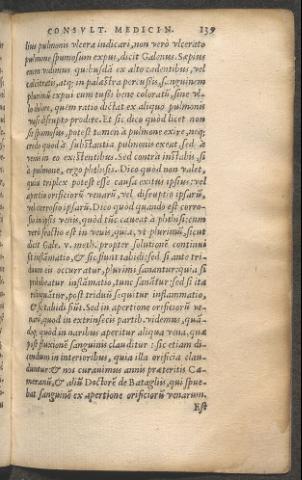 CONSVLT. MEDICIN. 139
lius pulmonis vlcera indicari, non verò vlcerato
pulmone spumosum expui, dicit Galenus. Sæpius
enim vidimus quibusdã ex alto cadentibus, vel
calcitratis, atq; in palæstra percussis, sanguinem
plurimũ expui cum tussi bene coloratũ, sine vl-
lo dolore, quem ratio dictat ex aliquo pulmonis
vase disrupto prodire. Et sic dico quòd licet non
sit spumosus, potest tamen à pulmone exire, neq;
credo quòd à substantia pulmonis exeat, sed à
venis in eo existentibus. Sed contrà instabis, si
à pulmone, ergo phthisis. Dico quòd non valet,
quia triplex potest esse causa exitus ipsius: vel
apertio orificiorũ venarũ, vel disruptio ipsarũ,
vel corrosio ipsarũ. Dico quòd quando est corro-
sio in ipsis venis, quòd tũc caueat à phthisi: cum
verò facta est in venis, quia, vt plurimũ, sicut
dicit Gale. v. meth. propter solutionẽ continui
fit inflamatio, & sic fiunt tabidi: sed si ante tri-
duum eis occurratur, plurimi sanantur: quia si
prohibeatur inflamatio, tunc sanãtur sed si ita
retineãtur, post triduũ sequitur inflammatio,
& sic tabidi fiũt. Sed in apertione orificiorũ ve-
narũ, quod in extrinsecis partib. videmus, quãn-
doq; quòd in naribus aperitur aliqua vena, quæ
post fluxionẽ sanguinis clauditur: sic etiam di-
cendum in interioribus, quia illa orificia clau-
duntur: & nos curauimus annis præteritis Ca-
meranũ, & aliũ Doctorẽ de Bataglijs, qui spue-
bat sanguinẽ ex apertione orificiorũ venarum.
Est